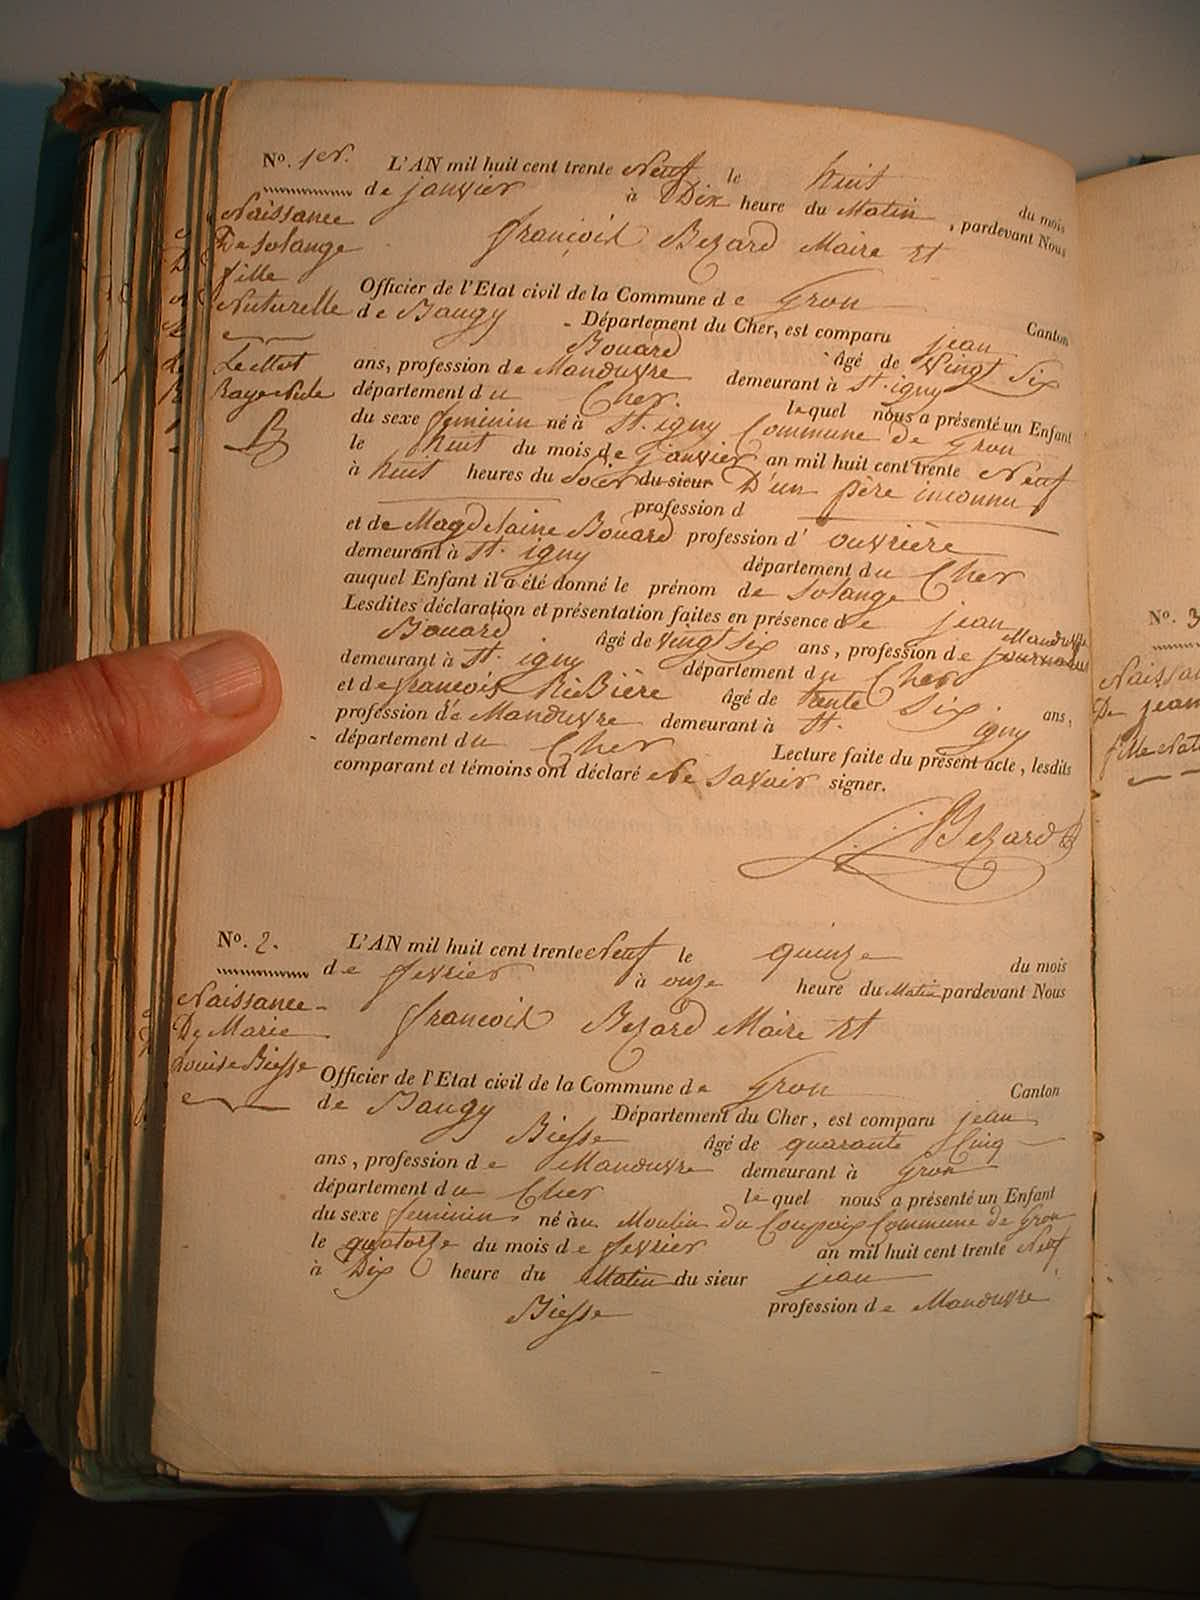 No. 1er.
Naissance
De Solange
fille
Naturelle
Le Mot
Raye Nule
L'AN mil huit cent trente Neuf le huit du mois
de janvier à Dix heure du Matin, pardevant Nous
françois Bezard Maire Et
Officier de l'Etat civil de la Commune de Gron Canton
de Baugy Département du Cher, est comparu jean
Bouard âgé de Vingt Six
ans, profession de Manœuvre demeurant à St. igny
département du Cher. lequel nous a présenté un Enfant
du sexe feminin né à St. igny Commune de Gron
le huit du mois de janvier an mil huit cent trente Neuf
à huit heures du Soir du sieur D'un père inconnu
profession d
et de Magdelaine Bouard profession d' ouvrière
demeurant à St. igny département du Cher
auquel Enfant il a été donné le prénom de Solange
Lesdites déclaration et présentation faites en présence de jean
Bouard âgé de vingt six ans, profession de Manœuvre
demeurant à St. igny département du Cher
et de françois RiBière âgé de trente Six ans,
profession de Manœuvre demeurant à St. igny
département du Cher Lecture faite du présent acte, lesdits
comparant et témoins ont déclaré Ne Savoir signer.
Bezard
No. 2.
Naissance
De Marie
Louise Biesse
L'AN mil huit cent trente Neuf le quinze du mois
de fevrier à onze heure du Matin pardevant Nous
françois Bezard Maire Et
Officier de l'Etat civil de la Commune de Gron Canton
de Baugy Département du Cher, est comparu jean
Biesse âgé de quarante Cinq
ans, profession de Manœuvre demeurant à Gron
département du Cher lequel nous a présenté un Enfant
du sexe feminin né au Moulin du Coupoix Commune de Gron
le quatorze du mois de fevrier an mil huit cent trente Neuf
à Dix heure du Matin du sieur jean
Biesse profession de Manœuvre
No. 3
Naissan
De jean
fille Nat